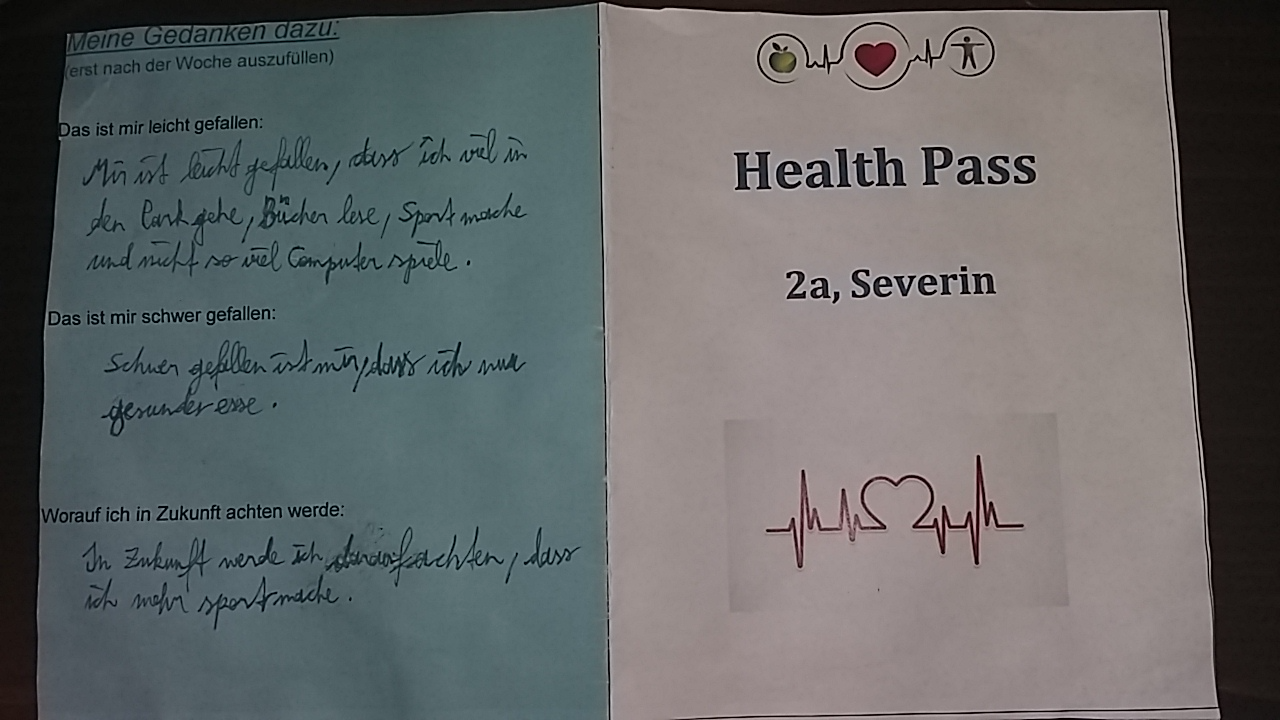 Meine Gedanken dazu:
(erst nach der Woche auszufüllen)
Das ist mir leicht gefallen:
Mir ist leicht gefallen, dass ich viel in
den Park gehe, Bücher lese, Sport mache
und nicht so viel Computer spiele.
Das ist mir schwer gefallen:
Schwer gefallen ist mir, dass ich nur
gesundes esse.
Worauf ich in Zukunft achten werde:
In Zukunft werde ich darauf achten, dass
ich mehr sport mache.
Health Pass
2a, Severin